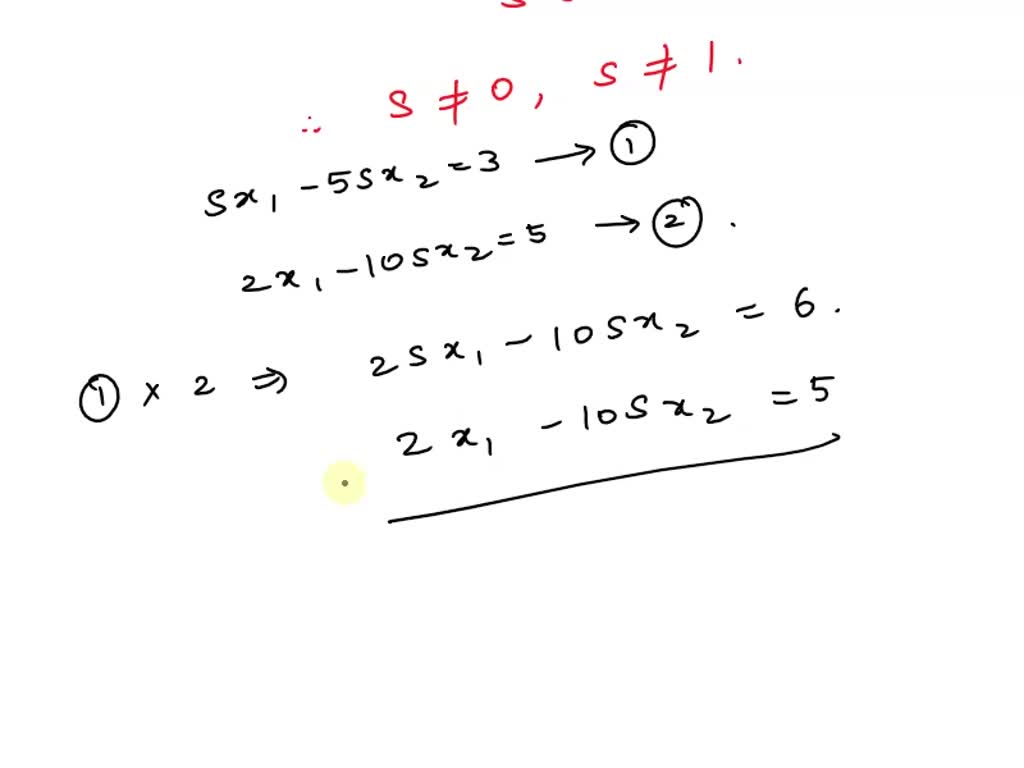 ∴ s ≠ 0, s ≠ 1.
sx₁ - 5sx₂ = 3 → ①
2x₁ - 10sx₂ = 5 → ② .
① × 2 ⇒ 2sx₁ - 10sx₂ = 6.
2x₁ - 10sx₂ = 5